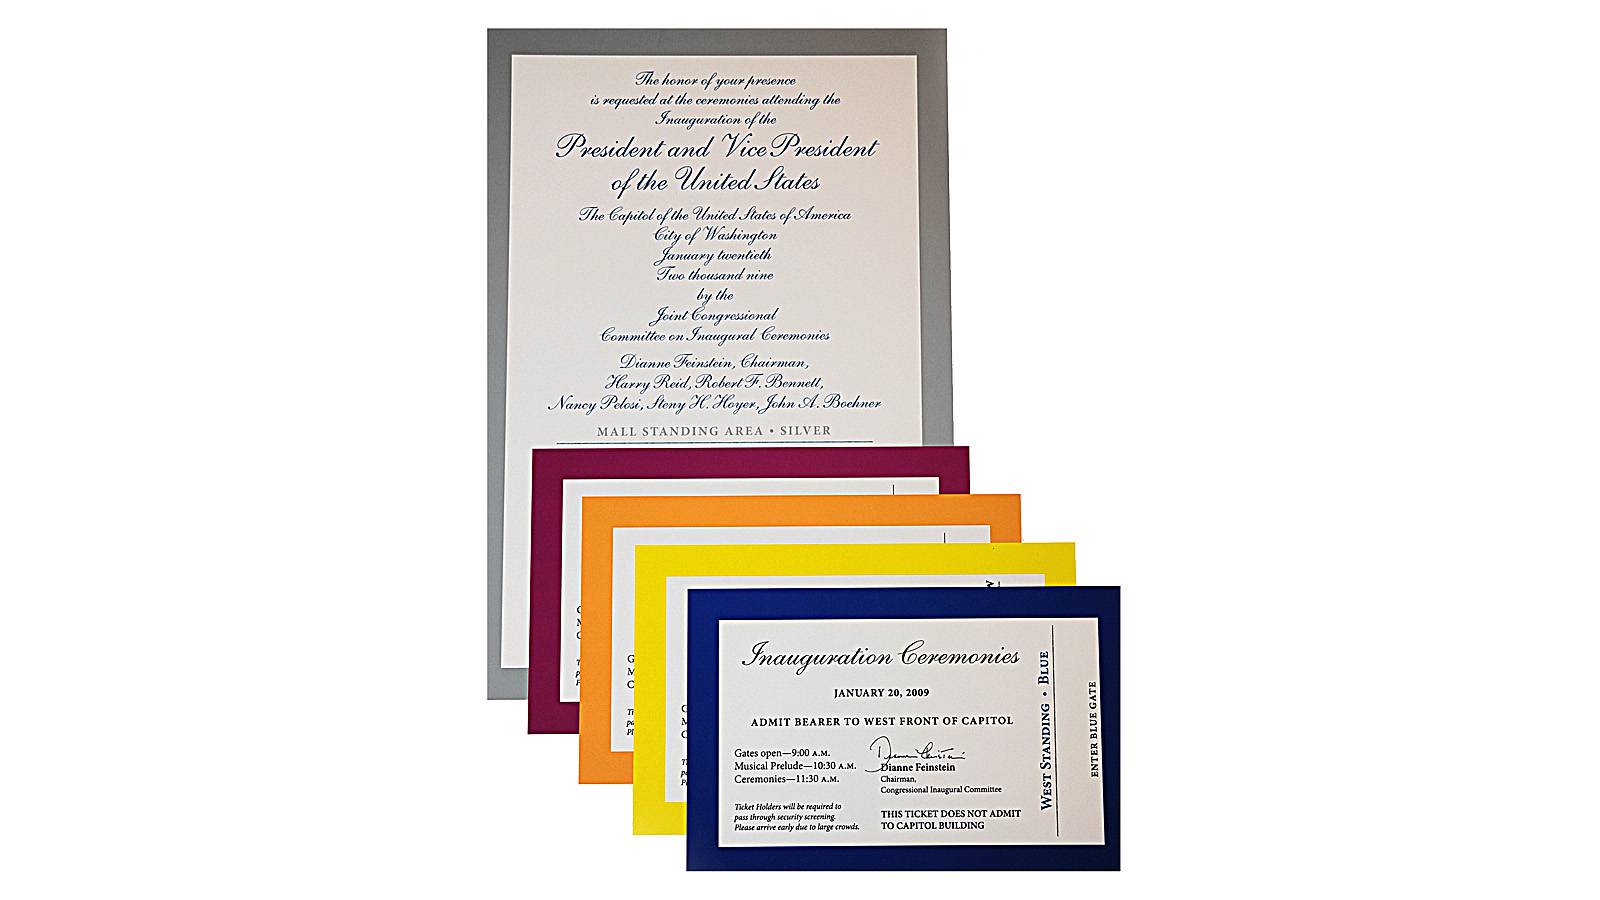 The honor of your presence
is requested at the ceremonies attending the
Inauguration of the
President and Vice President
of the United States
The Capitol of the United States of America
City of Washington
January twentieth
Two thousand nine
by the
Joint Congressional
Committee on Inaugural Ceremonies
Dianne Feinstein, Chairman,
Harry Reid, Robert F. Bennett,
Nancy Pelosi, Steny H. Hoyer, John A. Boehner
MALL STANDING AREA • SILVER
Inauguration Ceremonies
JANUARY 20, 2009
ADMIT BEARER TO WEST FRONT OF CAPITOL
Gates open—9:00 A.M.
Musical Prelude—10:30 A.M.
Ceremonies—11:30 A.M.
Ticket Holders will be required to
pass through security screening.
Please arrive early due to large crowds.
Dianne Feinstein
Dianne Feinstein
Chairman,
Congressional Inaugural Committee
THIS TICKET DOES NOT ADMIT
TO CAPITOL BUILDING
WEST STANDING • BLUE
ENTER BLUE GATE